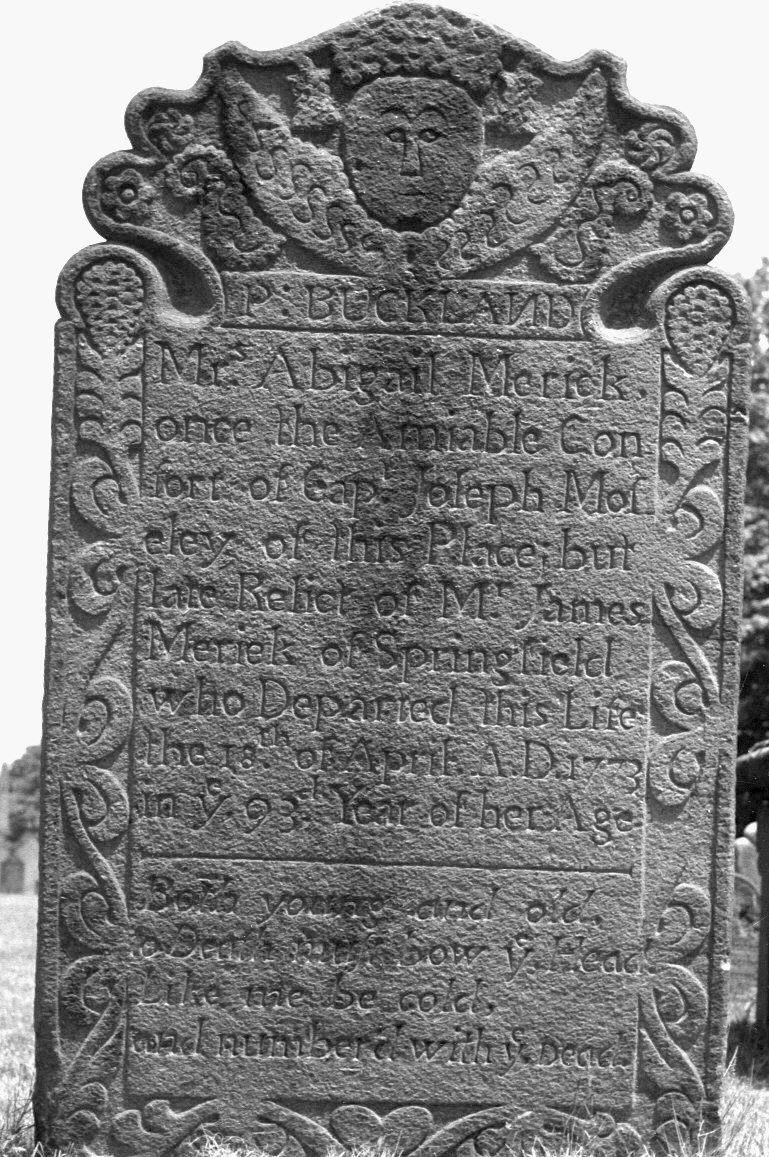 P: BUCKLAND
Mrs. Abigail Merick.
once the Amiable Con
ſort of Capt. Joſeph Moſ
eley. of this Place; but
late Relict of Mr. James
Merick of Springfield
who Departed this Life
the 18th of April A.D. 1773
in ye. 93d. Year of her Age
Both young and old,
o Death muſt bow ye. Head.
Like me be cold,
and number'd with ye. Dead.